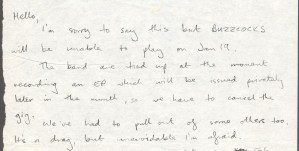 Hello,
I'm sorry to say this but BUZZCOCKS
will be unable to play on Jan 19.
The band are tied up at the moment
recording an EP which will be issued privately
later in the month, so we have to cancel the
gig.
We've had to pull out of some others too.
It's a drag, but unavoidable I'm afraid.